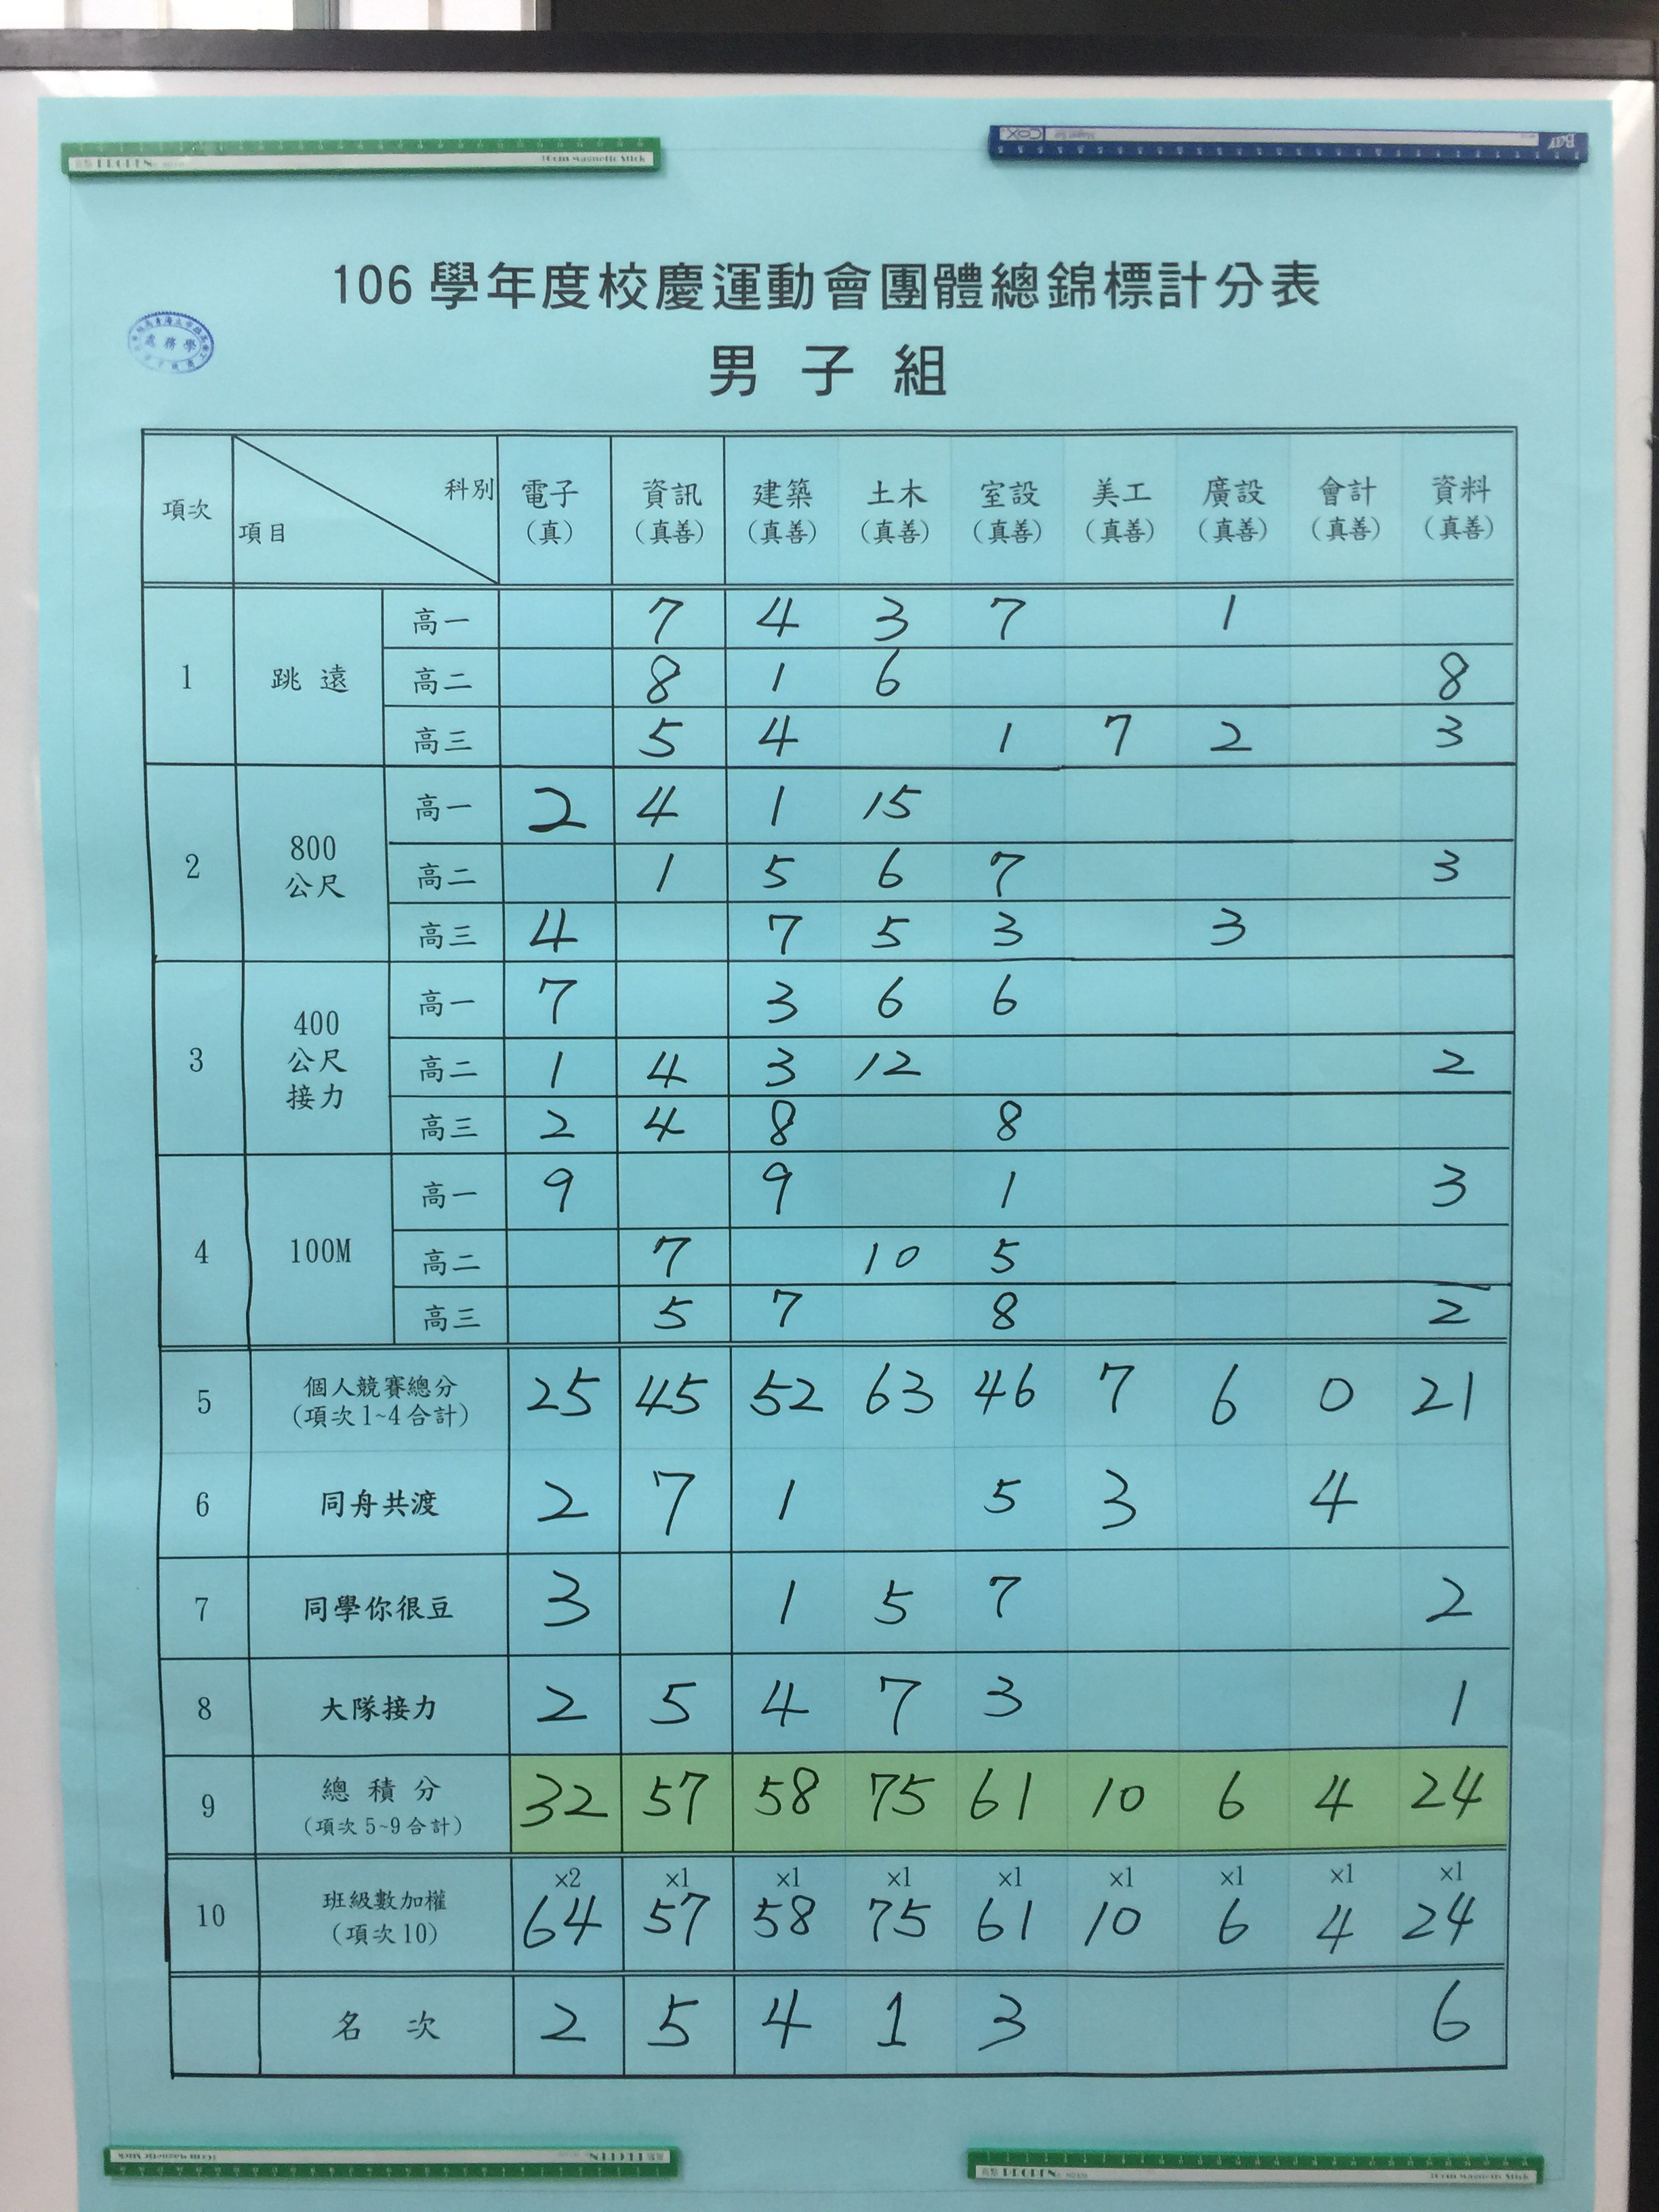 106 學年度校慶運動會團體總錦標計分表
男 子 組
項次 項目 科別 電子 資訊 建築 土木 室設 美工 廣設 會計 資料
(真) (真善) (真善) (真善) (真善) (真善) (真善) (真善) (真善)
1 跳 遠 高一 7 4 3 7 1
高二 8 1 6 8
高三 5 4 1 7 2 3
2 800 公尺 高一 2 4 1 15
高二 1 5 6 7 3
高三 4 7 5 3 3
3 400 公尺 接力 高一 7 3 6 6
高二 1 4 3 12 2
高三 2 4 8 8
4 100M 高一 9 9 1 3
高二 7 10 5
高三 5 7 8 2
5 個人競賽總分 25 45 52 63 46 7 6 0 21
(項次 1~4 合計)
6 同舟共渡 2 7 1 5 3 4
7 同學你很豆 3 1 5 7 2
8 大隊接力 2 5 4 7 3 1
9 總 積 分 32 57 58 75 61 10 6 4 24
(項次 5~9 合計)
×2 ×1 ×1 ×1 ×1 ×1 ×1 ×1 ×1
10 班級數加權 64 57 58 75 61 10 6 4 24
(項次 10)
名 次 2 5 4 1 3 6
處務學
PROPEN
20cm Magnetic Stick
COX